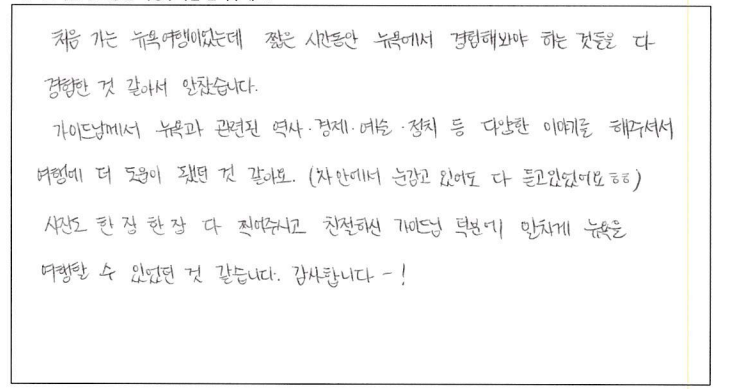 처음 가는 뉴욕여행이었는데 짧은 시간동안 뉴욕에서 경험해봐야 하는 것들을 다
경험한 것 같아서 알찼습니다.
가이드님께서 뉴욕과 관련된 역사·경제·예술·정치 등 다양한 이야기를 해주셔서
여행에 더 도움이 됐던 것 같아요. (차안에서 눈감고 있어도 다 듣고있었어요ㅎㅎ)
사진도 한장한장 다 찍어주시고 친절하신 가이드님 덕분에 알차게 뉴욕을
여행할 수 있었던 것 같습니다. 감사합니다-!